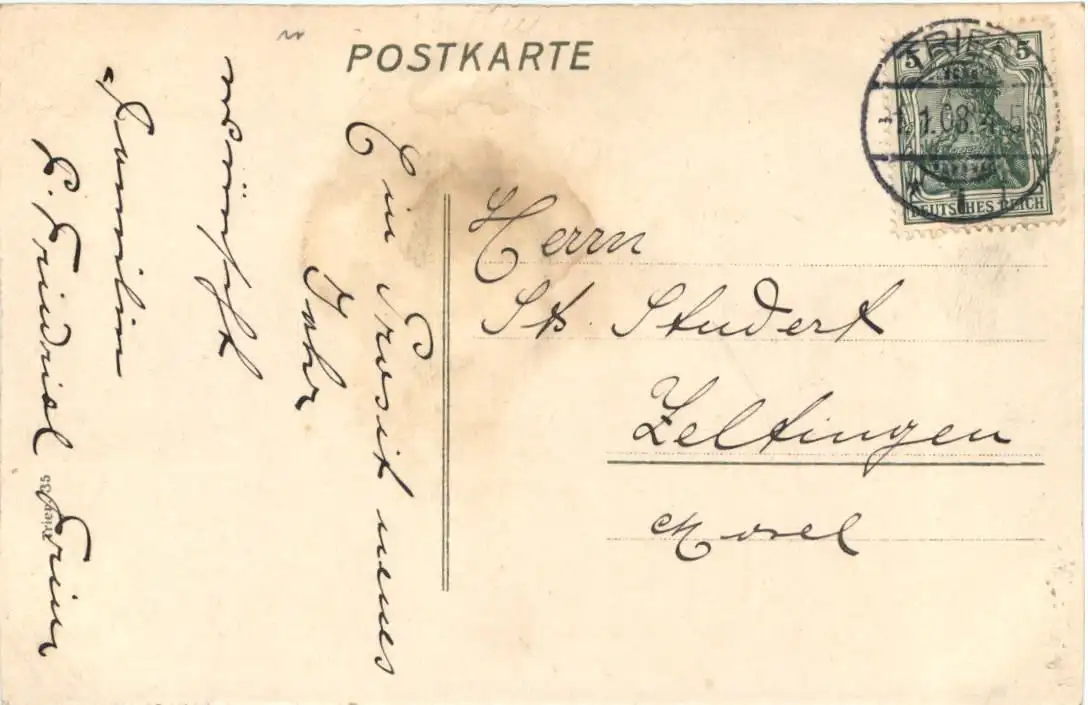 POSTKARTE
TRIER
1.1.08.4-5
5 5
DEUTSCHES REICH
Herrn
St. Studert
Zeltingen
Mosel
Ein Prosit neues
Jahr
wünscht
Familie
P. Friedrich Trier
Trier 35